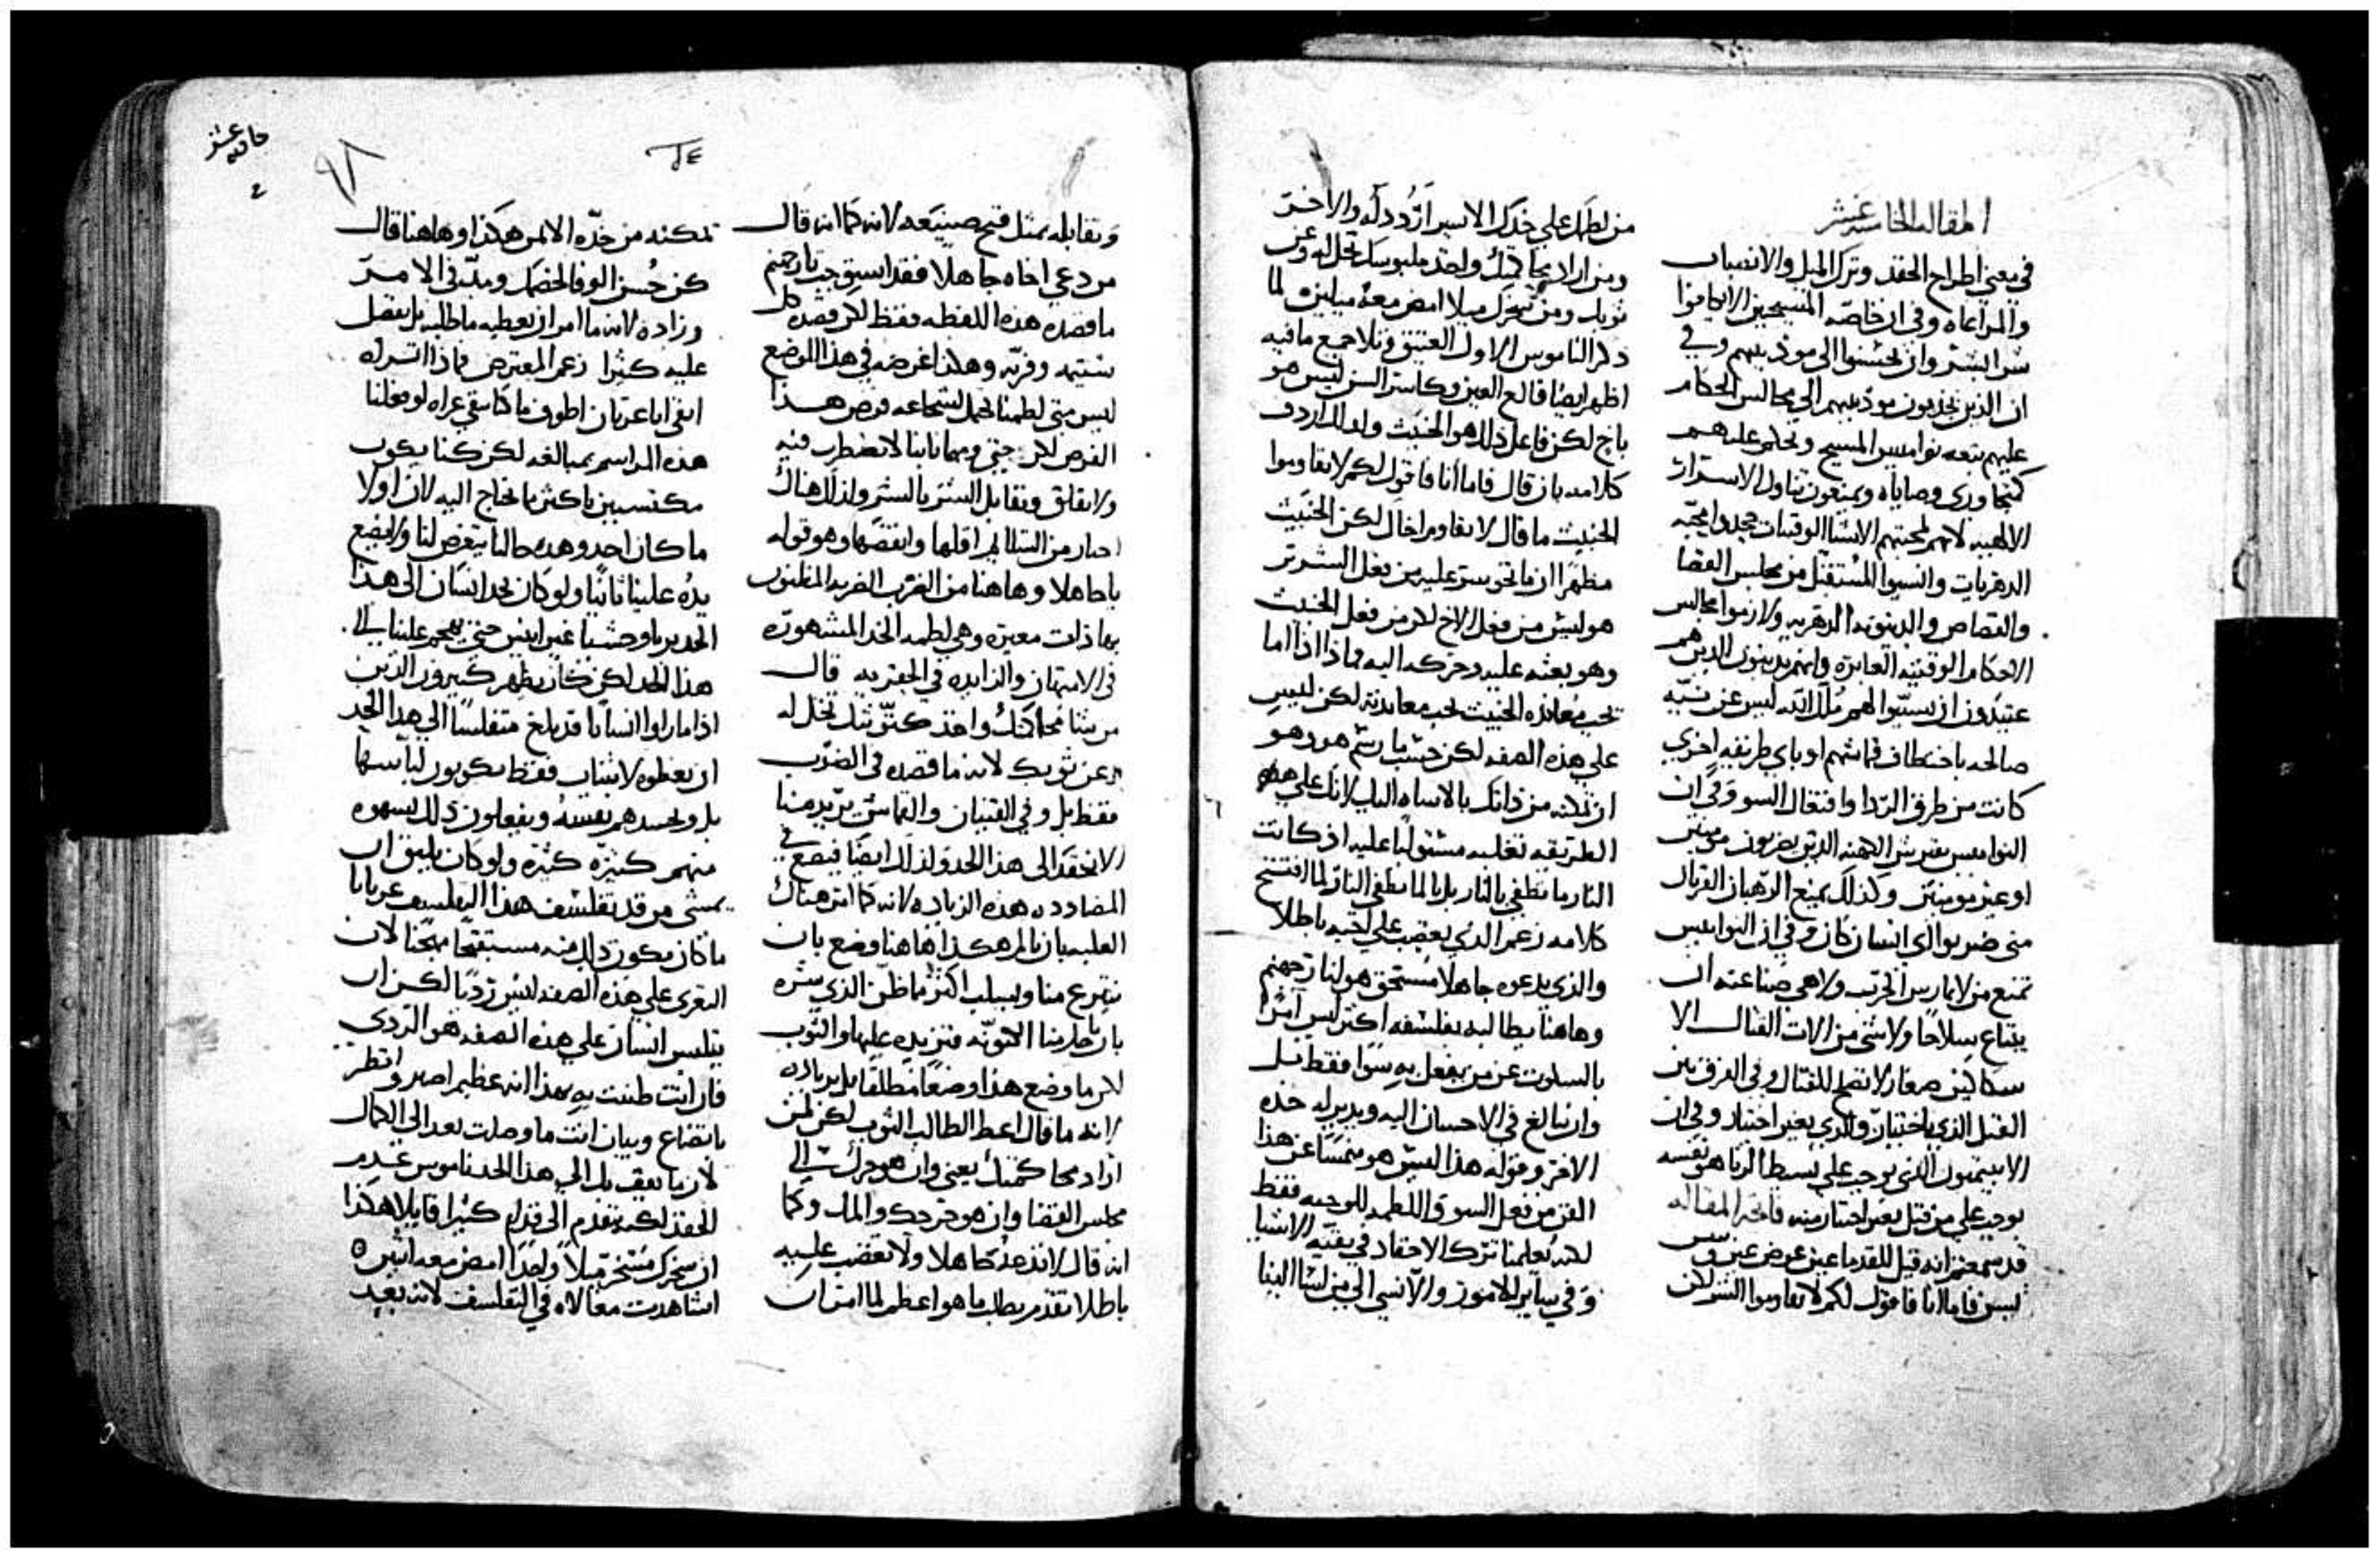 المقاله الخامسه عشر
في معني اطراح الحقد وترك الميل والانصباب
والمراعاه وفي ان خاصه المسيحيين الا يكافوا
شر البشر وان يحسنوا الى موذييهم وفي
ان الذين يجذبون موذييهم الي مجالس الحكام
عليهم تبعه نواميس المسيح وتحكم عليهم
كمتجاوزي وصاياه ويمنعون تناول الاسرار
الالهيه لانهم لمحبتهم الاشيا الوقتيات جحدوا محبه
الدهريات وانسيوا المستقبل من مجلس القضا
والقصاص والدينونه الدهريه ولازموا مجالس
الاحكام الوقتيه العابره وانهم يدينون الذين هم
عتيدون ان يسيبوا لهم ملك الله ليس عن نيه
صالحه باختطاف قماشهم او باي طريقه اخري
كانت من طرق الردا وافتعال السو وفي ان
النواميس الكهنه الذين يضربون مومنين
او غير مومنين وكذلك يمنع الرهبان القربان
متى ضربوا اي انسان كان وفي ان النواميس
تمنع من لا يمارس الحرب ولا هي صناعته ان
يبتاع سلاحا ولا شي من الات القتال الا
سكاكين صغار لا تصلح للقتال وفي الفرق بين
القتل الذي باختيار والذي بغير اختيار وفي ان
الذي يوجب علي هو نفسه
يوجب علي من قتل بغير اختيار منه فاتحه المقاله
قد سمعتم انه قيل للقدما عين عوض عين وسن
بسن فاما انا فاقول لكم لا تقاوموا الشر لكن
من لطمك علي خدك الايمن اردد له والاخر
ومن اراد محاكمتك واخذ ملبوسك تخل له وعن
ثوبك ومن سخرك ميلا امض معه ميلين لما
ذكر الناموس الاول العتيق وتلا جميع ما فيه
اظهر ايضا قالع العين وكاسر السن ليس هو
باخ لكن فاعل ذلك هو الخبيث ولذلك اردف
كلامه بان قال فاما انا فاقول لكم لا تقاوموا
الخبيث ما قال لا تقاوم اخاك لكن الخبيث
مظهرا ان ما تحوسر عليه من فعل الشر
هو ليس من فعل الاخ لكن من فعل الخبيث
وهو بعثه عليه وحركه اليه فماذا اذا اما
تجب معانده الخبيث تجب معاندته لكن ليس
علي هذه الصفه لكن حسب ما رسم هو وهو
ان تمكنه من ذاتك بالاساه اليك لانك علي هذه
الطريقه تغلبه مستوليا عليه اذ كانت
النار ما تطفى بالنار بل بالما تطفى النار لما افتتح
كلامه زعم الذي يغضب علي اخيه باطلا
والذي يدعوه جاهلا مستحق هو لنار جهنم
وهاهنا يطالبه بفلسفه اكثر ليس امرا
بالسكوت عن من يفعل به سوا فقط بل
وان يبالغ في الاحسان اليه ويدير له خده
الاخر وقوله هذا ليس هو متمسا عن هذا
الفن من فعل السو واللطمه للوجه فقط
لكنه يعلمنا ترك الاحقاد في بقيه الاشيا
وفي ساير الامور والانسي الي من اسا الينا
حاشيه عشر
٤
٩٨
٢٤
ونقابله بمثل قبح صنيعه لانه كما انه قال
من دعي اخاه جاهلا فقد استوجب نار جهنم
ما قصده هذه اللفظه فقط لكن قصده كل
شتيمه وفريه وهكذا غرضه في هذا الموضع
ليس متى لطمنا نحمل بشجاعه فرض هذا
الفرض لكن حتي ومهما نابنا لا نضطرب فيه
ولا نقلق ونقابل الشر بالشر ولذلك هناك
اختار من الشتايم اقلها وانقصها وهو قوله
يا جاهلا وهاهنا من الضرب الضربه المظنون
بها ذات معيره وهي لطمه الخد المشهوره
في الامتهان والزايده في الحقريه قال
من يشا محاكمتك واخذ كتونيتك تخل له
وعن ثوبك لانه ما قصده في الضرب
فقط بل وفي القنيان والقماش يريد منا
الا نحقد الى هذا الحد ولذلك ايضا فيضع في
المضادده هذه الزياده لانه كما امر هناك
الغلبه بان يالم هكذا هاهنا وضع بان
ينتزع منا ويسلب اكثر ما ظن الذي يشره
بان ياخذ منا الكتونه فنزيده عليها والثوب
لكن ما وضع هذا وضعا مطلقا بل بزياده
لانه ما قال اعط الطالب الثوب لكن لمن
اراد محاكمتك يعني وان هو جرك الي
مجلس القضا وان هو خرجك والمك وكما
انه قال لا تدعه جاهلا ولا تغضب عليه
باطلا تقدم يطلب ما هو اعظم لما امر ان
تمكنه من خده الايمن هكذا وهاهنا قال
كن حسن الوفا لخصمك ومد في الامر
وزاده لانه ما امر ان يعطيه ما طلبه بل بفضل
عليه كثيرا زعم المعترض فماذا اترك له
ابقى انا عريان اطوف ما كنا نبقي عراه لو فعلنا
هذه المراسم بمبالغه لكن كنا نكون
مكتسيين باكثر ما نحتاج اليه لان اولا
ما كان احد وهذه حالنا يتعرض لنا ولا يضع
يده علينا ثانيا ولو كان يجد انسان الى هذا
الحد بريا وحشيا غير انيس حتي يهجم علينا الي
هذا الحد لكن كان يظهر كثيرون الذين
اذا ما راوا انسانا قد بلغ متفلسفا الي هذا الحد
ان يعطوه لا ثياب فقط يكونون لابسيها
بل وجسدهم نفسه ويفعلون ذلك بسهوله
منهم كثيره كثيره ولو كان يليق ان
يمشي من قد تفلسف هذا التفلسف عريانا
ما كان يكون ذلك منه مستقبحا مهجنا لان
التعري علي هذه الصفه ليس رديا لكن ان
يتلبس انسان علي هذه الصفه هو الردي
فان انت ظننت به بهذا انه عظيم اصبر وانظر
باتضاع وبيان انت ما وصلت بعد الى الكمال
لان ما يقف بك الي هذا الحد ناموس عدم
الحقد لكنه يتقدم الى قدام كثيرا قايلا هكذا
ان سخرك مسخر ميلا واحدا امض معه اثنين
اشاهدت مغالاه في التفلسف لانه بعد